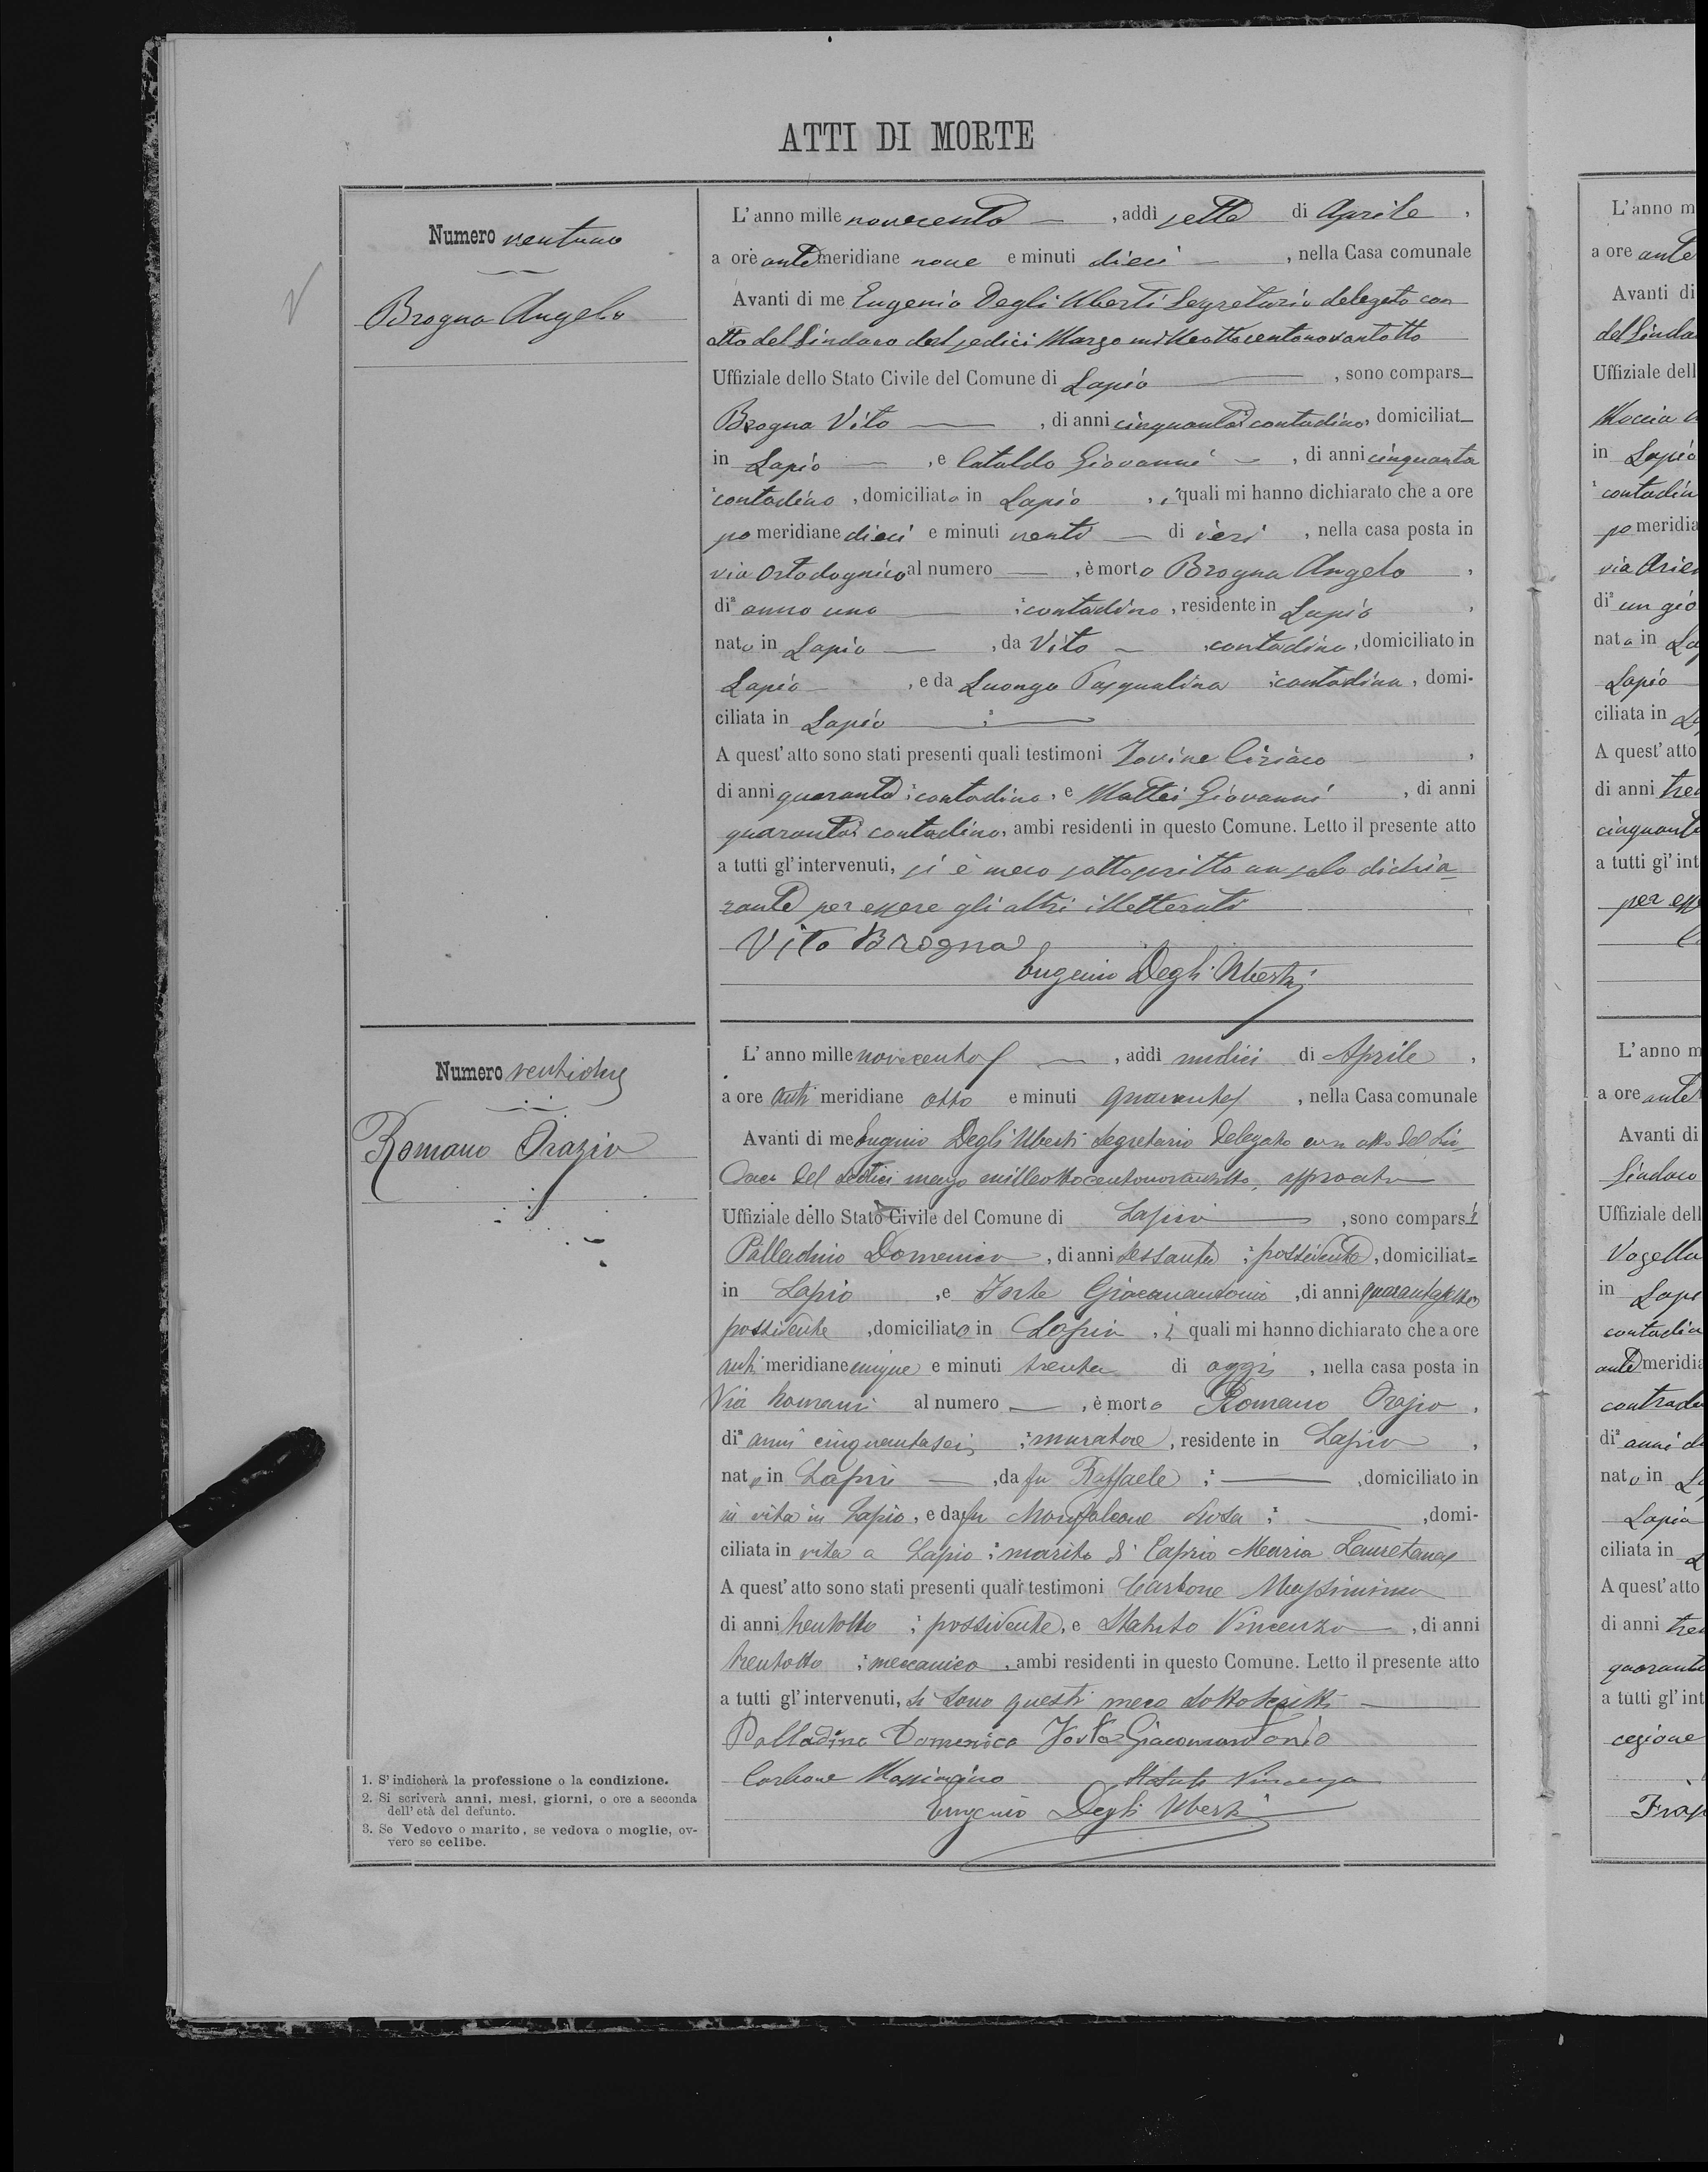 ATTI DI MORTE
Numero ventuno
Brogna Angelo
L'anno mille novecento, addì sette di Aprile,
a ore antimeridiane nove e minuti dieci, nella Casa comunale
Avanti di me Eugenio Degli Uberti Segretario delegato con
atto del Sindaco del sedici Marzo milleottocentonovantotto
Uffiziale dello Stato Civile del Comune di Lapio, sono compars
Brogna Vito, di anni cinquanta contadino, domiciliat
in Lapio, e Cataldo Giovanni, di anni cinquanta
contadino, domiciliato in Lapio, i quali mi hanno dichiarato che a ore
pomeridiane dieci e minuti venti di ieri, nella casa posta in
via Ortodognico al numero, è morto Brogna Angelo,
di² anno uno ; contadino, residente in Lapio,
nato in Lapio, da Vito, contadino, domiciliato in
Lapio, e da Luongo Pasqualina ; contadina, domi-
ciliata in Lapio ;
A quest'atto sono stati presenti quali testimoni Iovine Ciriaco,
di anni quaranta ; contadino, e Mattei Giovanni, di anni
quaranta contadino, ambi residenti in questo Comune. Letto il presente atto
a tutti gl'intervenuti, si è meco sottoscritto un solo dichia-
rante per essere gli altri illetterati
Vito Brogna
Eugenio Degli Uberti
Numero ventidue
Romano Orazio
L'anno mille novecento, addì undici di Aprile,
a ore antimeridiane otto e minuti quaranta, nella Casa comunale
Avanti di me Eugenio Degli Uberti Segretario delegato con atto del Sin-
daco del sedici marzo milleottocentonovantotto, approvato
Uffiziale dello Stato Civile del Comune di Lapio, sono comparsi
Palladino Domenico, di anni sessanta ; possidente, domiciliat=
in Lapio, e Forte Giacomantonio, di anni
possidente, domiciliato in Lapio, i quali mi hanno dichiarato che a ore
antimeridiane cinque e minuti trenta di oggi, nella casa posta in
Via Romani al numero, è morto Romano Orazio,
di² anni cinquantasei ; muratore, residente in Lapio,
nato in Lapio, da fu Raffaele ;, domiciliato in
in vita in Lapio, e da fu Monfalcone Rosa ;, domi-
ciliata in vita a Lapio ; marito di Caprio Maria Lauretana
A quest'atto sono stati presenti quali testimoni Carbone Massimino
di anni trentotto ; possidente, e Statuto Vincenzo, di anni
trentotto ; meccanico, ambi residenti in questo Comune. Letto il presente atto
a tutti gl'intervenuti, si sono questi meco sottoscritti
Palladino Domenico Forte Giacomantonio
Carbone Massimino Statuto Vincenzo
Eugenio Degli Uberti
1. S'indicherà la professione o la condizione.
2. Si scriverà anni, mesi, giorni, o ore a seconda
dell'età del defunto.
3. Se Vedovo o marito, se vedova o moglie, ov-
vero se celibe.
L'anno m
a ore ante
Avanti di
del Sinda
Uffiziale dell
Moccia
in Lapio
contadin
pomeridia
via Arie
di² un gio
nato in La
Lapio
ciliata in L
A quest'atto
di anni tre
cinquant
a tutti gl'int
per ess
L'anno m
a ore ante
Avanti di
Sindaco
Uffiziale dell
Vogella
in Lapi
contadin
antemeridia
contrada
di² anni d
nato in La
Lapio
ciliata in L
A quest'atto
di anni tre
quarant
a tutti gl'int
cezione